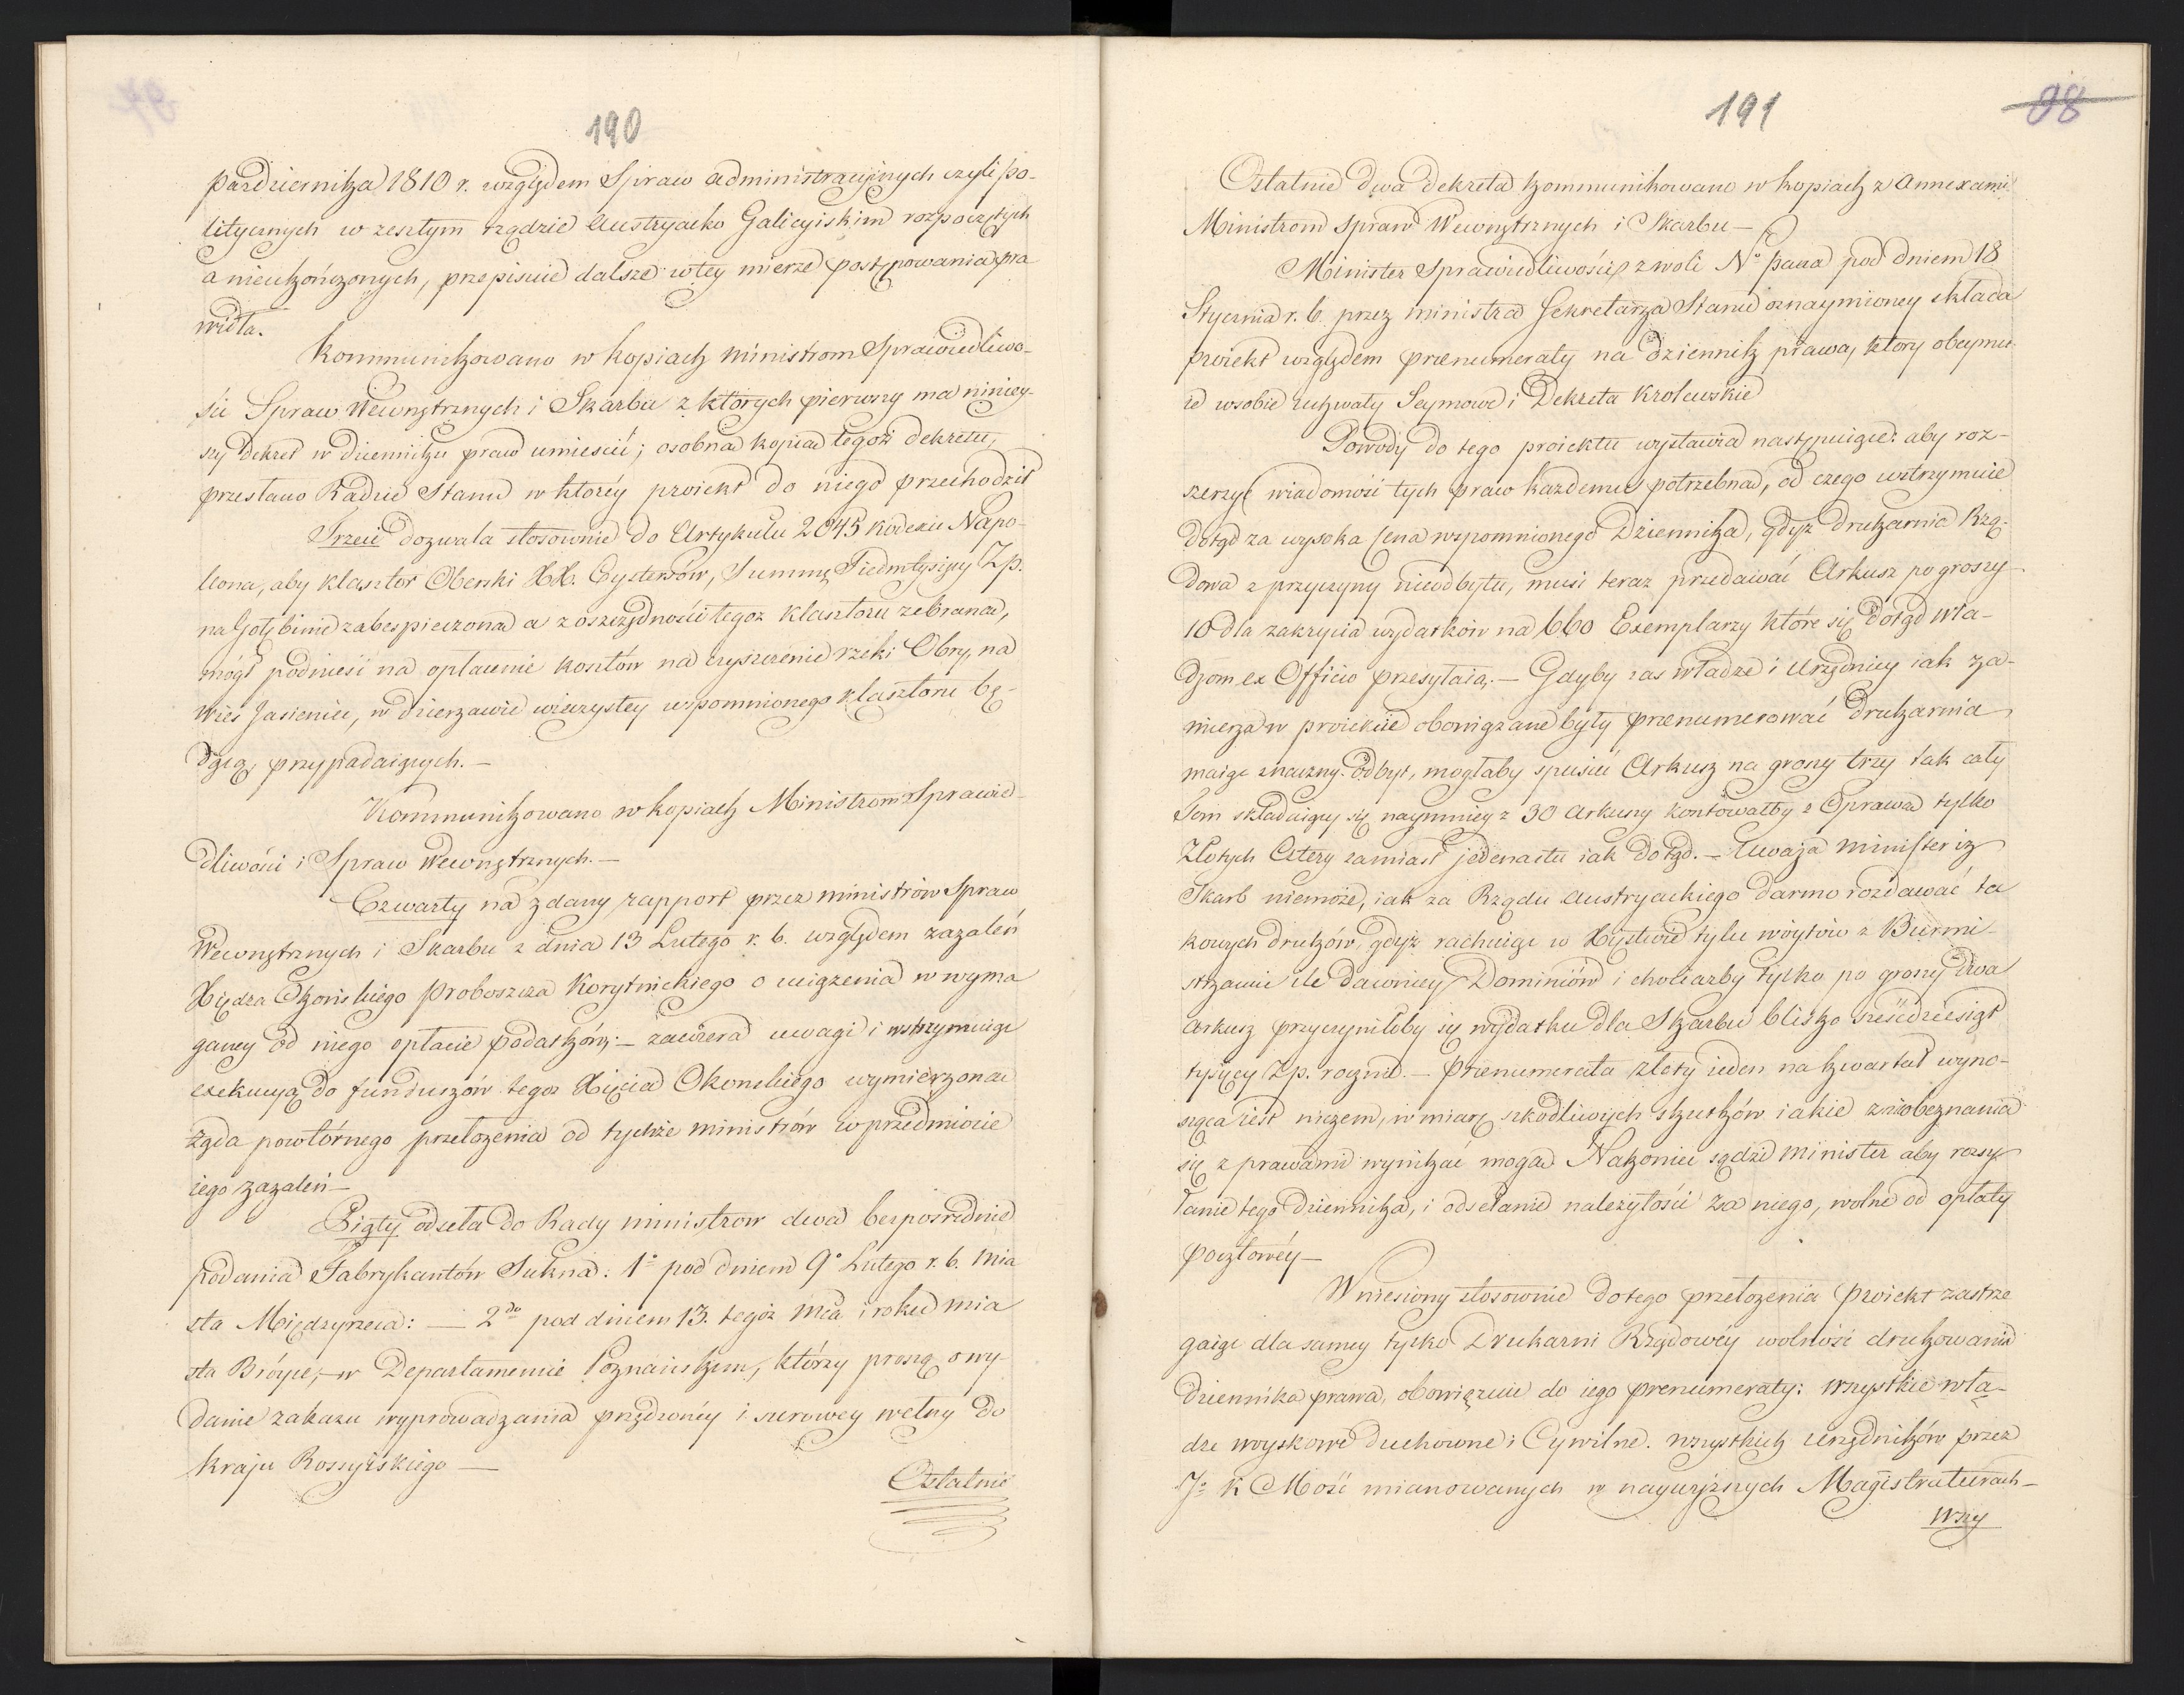 190
pazdziernika 1810 r. względem Spraw administracyinych czyli po-
litycznych w zeszłym rządzie Austryacko Galicyiskim rozpoczętych
a nieukończonych, przepisuie dalsze w tey mierze postępowania pra
widła.
Kommunikowano w kopiach ministrom Sprawiedliwo-
ści Spraw Wewnętrznych i Skarbu z których pierwszy ma niniey-
szy dekret w dzienniku praw umieścić; osobna kopia tegoż dekretu,
przesłano Radzie Stanu w którey proiekt do niego przechodził
Trzeci dozwala stosownie do Artykułu 2045 kodexu Napo-
leona, aby klasztor Oberski XX. Cystersów, Summę Siedmtysięcy Zp.
na Gołębinie zabespieczoną a z oszczędności tegoż klasztoru zebraną,
mógł podnieść na opłacenie kosztów na czyszczenie rzeki Obry, na
wieś Jasieniec, w dzierzawie wieczystey wspomnionego klasztoru bę-
dącą, przypadaiących. —
Kommunikowano w kopiach Ministrom Sprawied-
dliwości i Spraw Wewnętrznych. —
Czwarty na zdany rapport przez ministrów Spraw
Wewnętrznych i Skarbu z dnia 13 Lutego r. b. względem zazaleń
Xiędza Okońskiego Proboszcza Korytnickiego o uciązenia w wyma
ganey od niego opłacie podatków; — zawiera uwagi i wstrzymuiąc
exekucyą do funduszów tegoż Xięcia Okonskiego wymierzoną
żąda powtórnego przełozenia od tychże ministrów w przedmiocie
iego zazaleń —
Piąty odseła do Rady ministrow dwa bezposrednie
podania Fabrykantów Sukna: 1º pod dniem 9º Lutego r. b. mia
sta Międzyrzecza: — 2do pod dniem 13. tegoż mca i roku mia
sta Bróyce; — w Departamencie Poznańskim, którzy proszą o wy-
danie zakazu wyprowadzania przędzonéy i surowey wełny do
kraju Rossyiskiego —
Ostatnie
191
98
Ostatnie dwa dekreta kommunikowano w kopiach z Annexami
Ministrom spraw Wewnętrznych i Skarbu —
Minister Sprawiedliwości z woli Nº pana pod dniem 18
Stycznia r. b. przez ministra Sekretarza Stanu oznaymioney składa
proiekt względem prænumeraty na dziennik prawa, który obeymu-
ie w sobie uchwały Seymowe i Dekreta Krolewskie
Powody do tego proiektu wystawia nastepuiące: aby roz-
szerzyć wiadomość tych praw każdemu potrzebną, od czego wstrzymuie
dotąd za wysoka Cena wspomnionego Dziennika, gdyż drukarnia Rzą-
dowa z przyczyny nieodbytu, musi teraz przedawać Arkusz po groszy
10 dla zakrycia wydatków na 660 Exemplarzy które się dotąd wła-
dzom ex Officio przesyłaią. — Gdyby zas władze i Urzędnicy iak za-
mierza w proiekcie obowiązane były prænumerować drukarnia
maiąc znaczny odbyt, mogłaby spuścić Arkusz na groszy trzy tak cały
Tom składaiący się naymniey z 30 Arkuszy kosztowałby z Oprawą tylko
Złotych Cztery zamiast jedenastu iak dotąd. — Uważa minister iz
Skarb niemoże, iak za Rządu Austryackiego darmo rozdawać ta
kowych druków, gdyż rachuiąc w Xięstwie tylu wóytów z Burmi-
strzami ile dawniey Dominiów i chociażby tylko po groszy dwa
arkusz przyczyniłoby się wydatku dla Skarbu blisko sześćdziesiąt
tysięcy Zp. rocznie. — Prænumerata złoty ieden na kwartał wyno-
sząca iest niczem, w miarę szkodliwych skutków iakie z nieobeznania
się z prawami wynikać mogą Nakoniec sądzi minister aby rozsy-
łanie tego dziennika, i odsełanie należytości za niego, wolne od opłaty
pocztowéy —
Wniesiony stosownie do tego przełozenia proiekt zastrze
gaiąc dla samey tylko Drukarni Rządowéy wolność drukowania
dziennika prawa, obowięzuie do iego prenumeraty: wszystkie wła-
dze woyskowe duchowne i Cywilne. wszystkich urzędników przez
J: K Mość mianowanych w naywyższych Magistraturach —
wszy